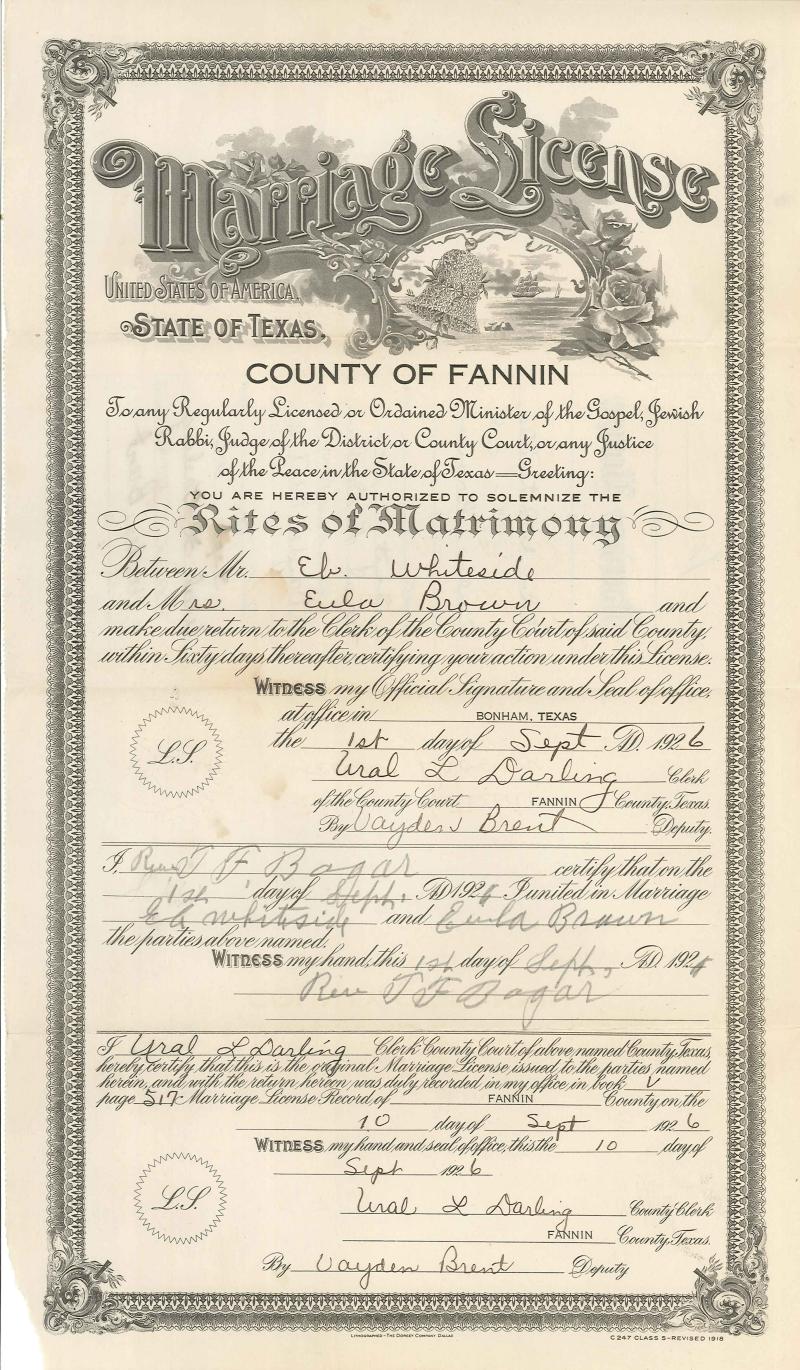 Marriage License
UNITED STATES OF AMERICA,
STATE OF TEXAS,
COUNTY OF FANNIN
To any Regularly Licensed or Ordained Minister of the Gospel, Jewish
Rabbi, Judge of the District or County Court, or any Justice
of the Peace in the State of Texas—Greeting:
YOU ARE HEREBY AUTHORIZED TO SOLEMNIZE THE
Rites of Matrimony
Between Mr. Eb. Whiteside
and Mrs. Eula Brown and
make due return to the Clerk of the County Court of said County,
within Sixty days thereafter, certifying your action under this License.
WITNESS my Official Signature and Seal of office,
at office in BONHAM, TEXAS
the 1st day of Sept A.D. 1926
L.S.
Ural L Darling Clerk
of the County Court FANNIN County, Texas.
By Vayden Brent Deputy.
I, Rev T F Bogar certify that on the
1st day of Sept. A.D. 1926 I united in Marriage
Eb Whiteside and Eula Brown
the parties above named.
WITNESS my hand, this 1st day of Sept., A.D. 1926
Rev T F Bogar
I Ural L Darling Clerk County Court of above named County, Texas,
hereby certify that this is the original Marriage License issued to the parties named
herein, and with the return hereon, was duly recorded in my office, in book V
page 517 Marriage License Record of FANNIN County on the
10 day of Sept 1926
WITNESS my hand, and seal of office, this the 10 day of
Sept 1926
L.S.
Ural L Darling County Clerk
FANNIN County, Texas.
By Vayden Brent Deputy
LITHOGRAPHED-THE DORSEY COMPANY DALLAS
C 247 CLASS 5-REVISED 1918